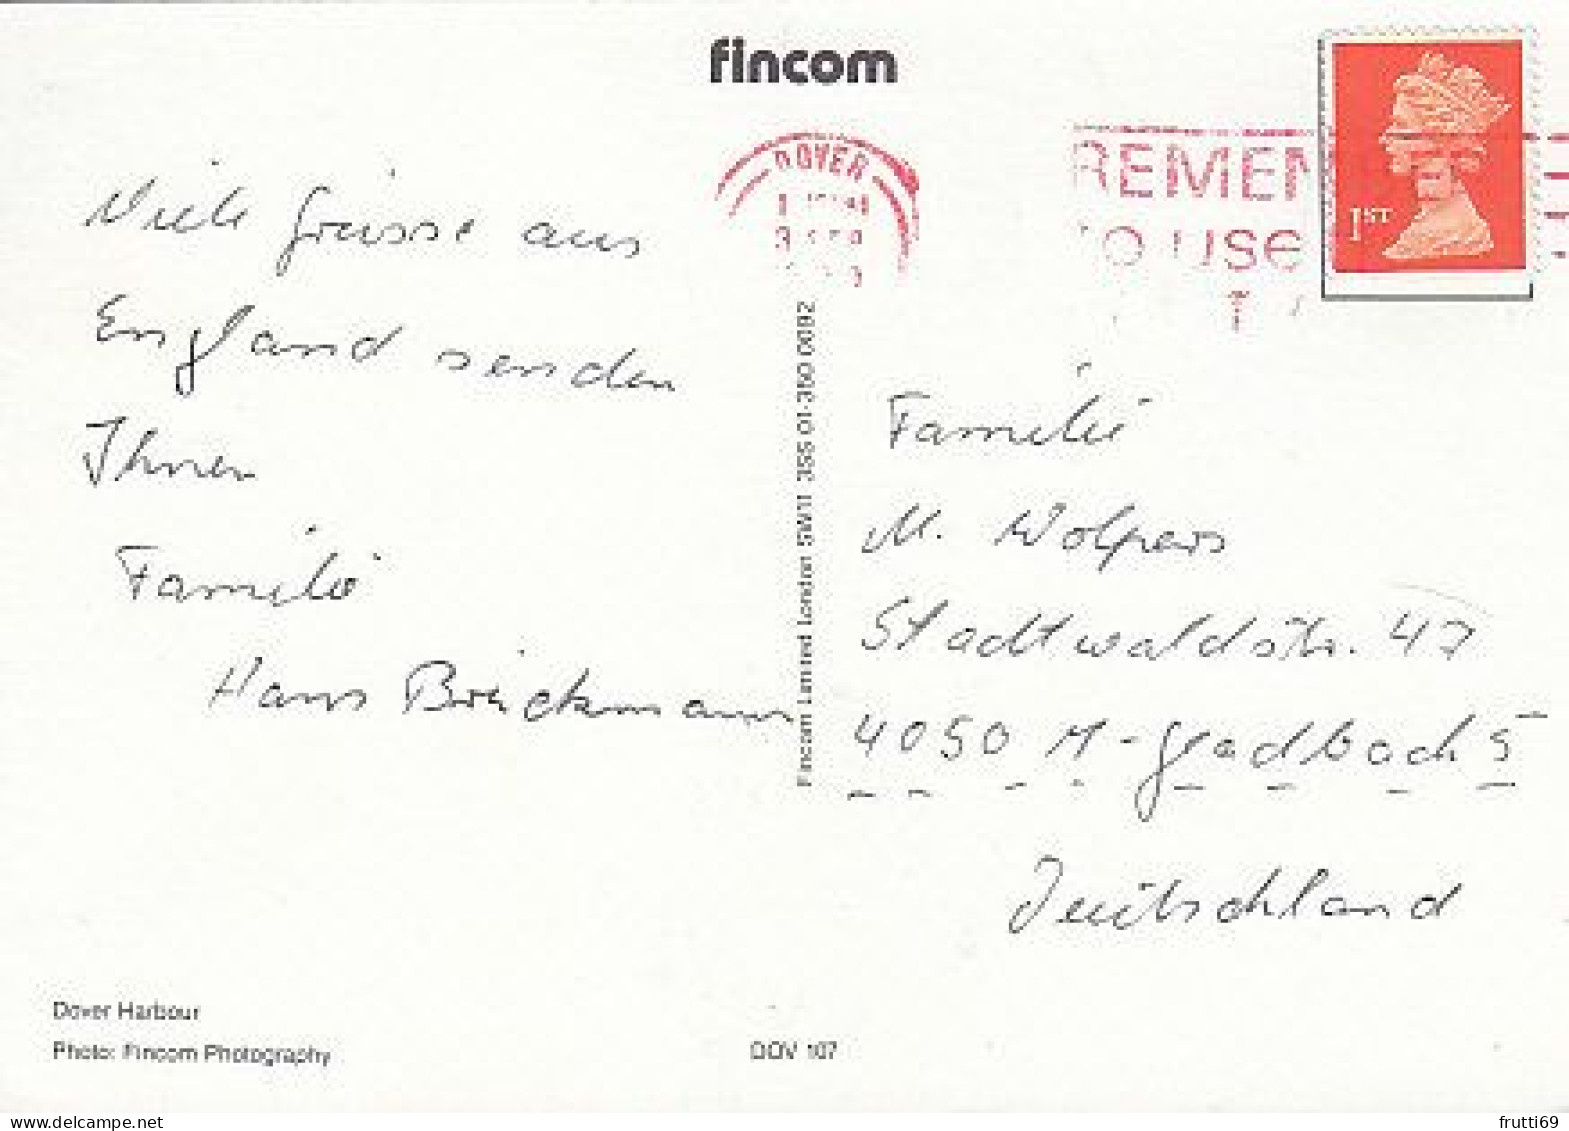 fincom
DOVER
REMEM
to use
1ST
Viele Grüsse aus
England senden
Ihnen
Familie
Hans Brückmann
Fincom Limited London SW11 3SS 01-350 0092
Familie
M. Wolpers
Stadtwaldstr. 47
4050 M-Gladbach 5
Deutschland
Dover Harbour
Photo: Fincom Photography
DOV 107
Delcampe.net
frutti69